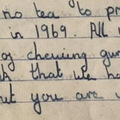 no tea to pr
in 1969. All
of chewing gum
A that we ha
but you are